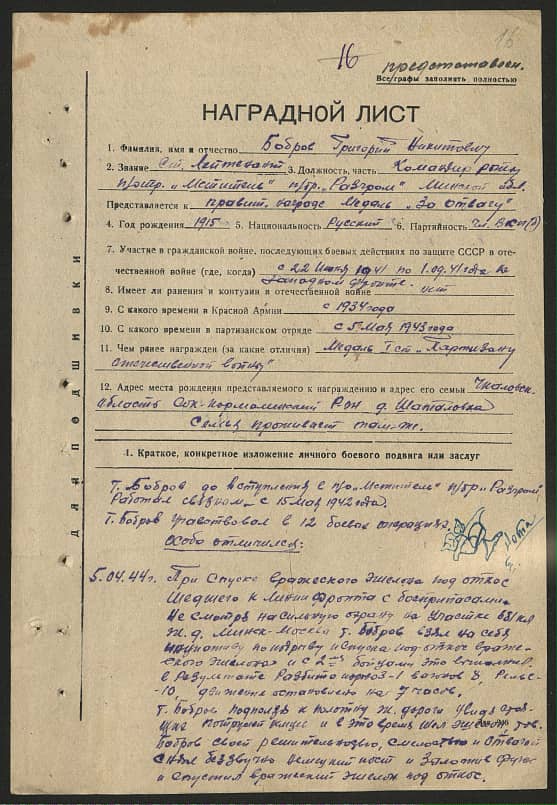 16
16
представлен.
Все графы заполнять полностью
НАГРАДНОЙ ЛИСТ
1. Фамилия, имя и отчество Бобров Григорий Никитович
2. Звание Ст. Лейтенант 3. Должность, часть Командир роты
п/отр. „Мститель" п/бр. „Разгром" Минской обл.
Представляется к правит. награде Медаль „За отвагу"
4. Год рождения 1915 5. Национальность Русский 6. Партийность чл. ВКП(б)
7. Участие в гражданской войне, последующих боевых действиях по защите СССР в оте-
чественной войне (где, когда) с 22 Июня 1941 по 1.09.41 года на
Западном фронте.
8. Имеет ли ранения и контузии в отечественной войне
9. С какого времени в Красной Армии с 1934 года
10. С какого времени в партизанском отряде с 5 мая 1943 года
11. Чем ранее награжден (за какие отличия) Медаль I ст „Партизану
отечественной войны"
12. Адрес места рождения представляемого к награждению и адрес его семьи Чкаловск.
область Рон д. Шапаловка
Семья проживает там-же.
1. Краткое, конкретное изложение личного боевого подвига или заслуг
Для подшивки
т. Бобров до вступления в п/о „Мститель" п/бр. „Разгром"
Работал связным с 15 мая 1942 года.
Т. Бобров участвовал в 12 боевых операциях.
Особо отличился:
5.04.44 г. При спуске вражеского эшелона под откос
шедшего к линии фронта с боеприпасами
Не смотря на сильную охрану на участке
ж.д. Минск-Москва т. Бобров взял на себя
инициативу по подрыву и спуска под откос враже-
ского эшелона и с 2мя бойцами это выполнил
в Результате Разбито паровоз-1 вагонов 8, Рельс-
-10, движение остановлено на 7 часов.
т. Бобров подполз к полотну ж. дороги увидя стоя-
щие и в это время шел эшелон, тов.
Бобров своей решительностью, смелостью и Отвагой
снял беззвучно Немецкий пост и Заложив
и спустил вражеский эшелон под откос.